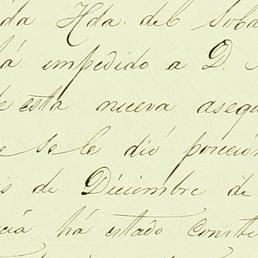 da Hda. del Soba
á impedido a D.
de esta nueva asegu
e se le dió posición
is de Diciembre de
cia há estado conste